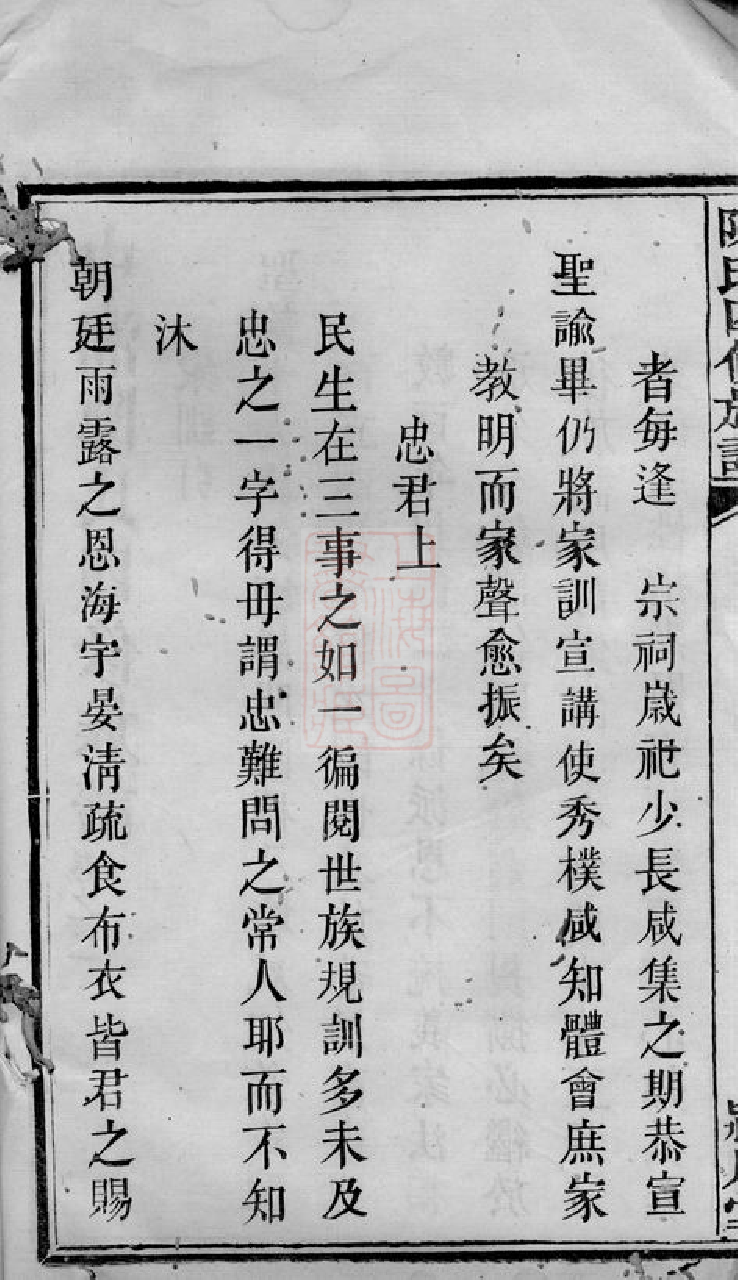 者每逢　宗祠歲祀少長咸集之期恭宣
聖諭畢仍將家訓宣講使秀樸咸知體會庶家
教明而家聲愈振矣
忠君上
民生在三事之如一徧閱世族規訓多未及
忠之一字得毋謂忠難問之常人耶而不知
沐
朝廷雨露之恩海宇晏淸疏食布衣皆君之賜